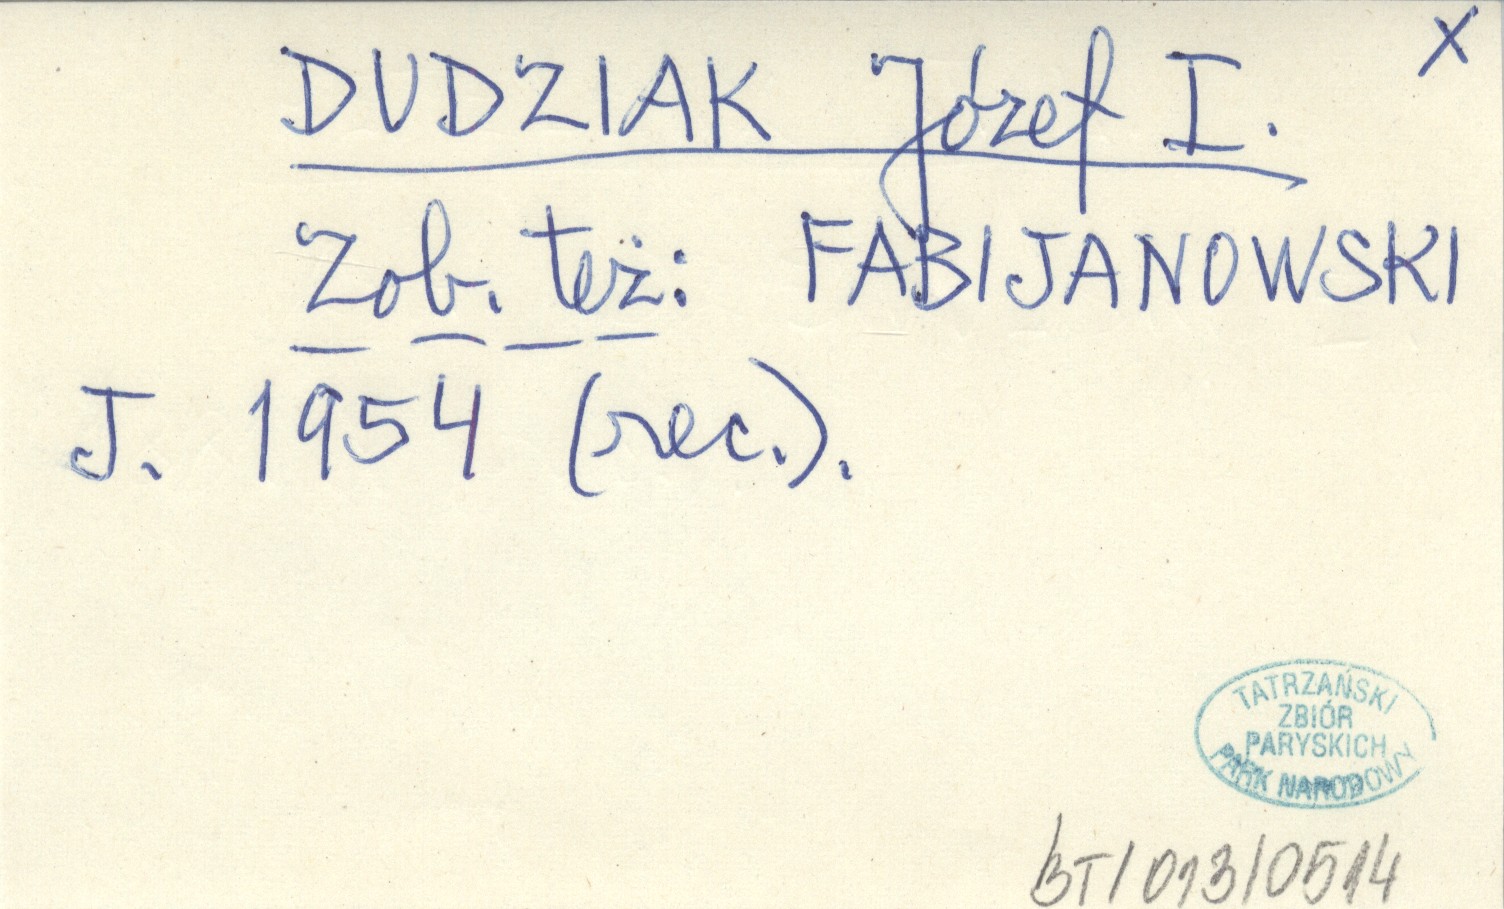 X
DUDZIAK Józef I.
Zob. też: FABIJANOWSKI
J. 1954 (rec.).
TATRZAŃSKI
ZBIÓR
PARYSKICH
PARK NARODOWY
BT/013/0514